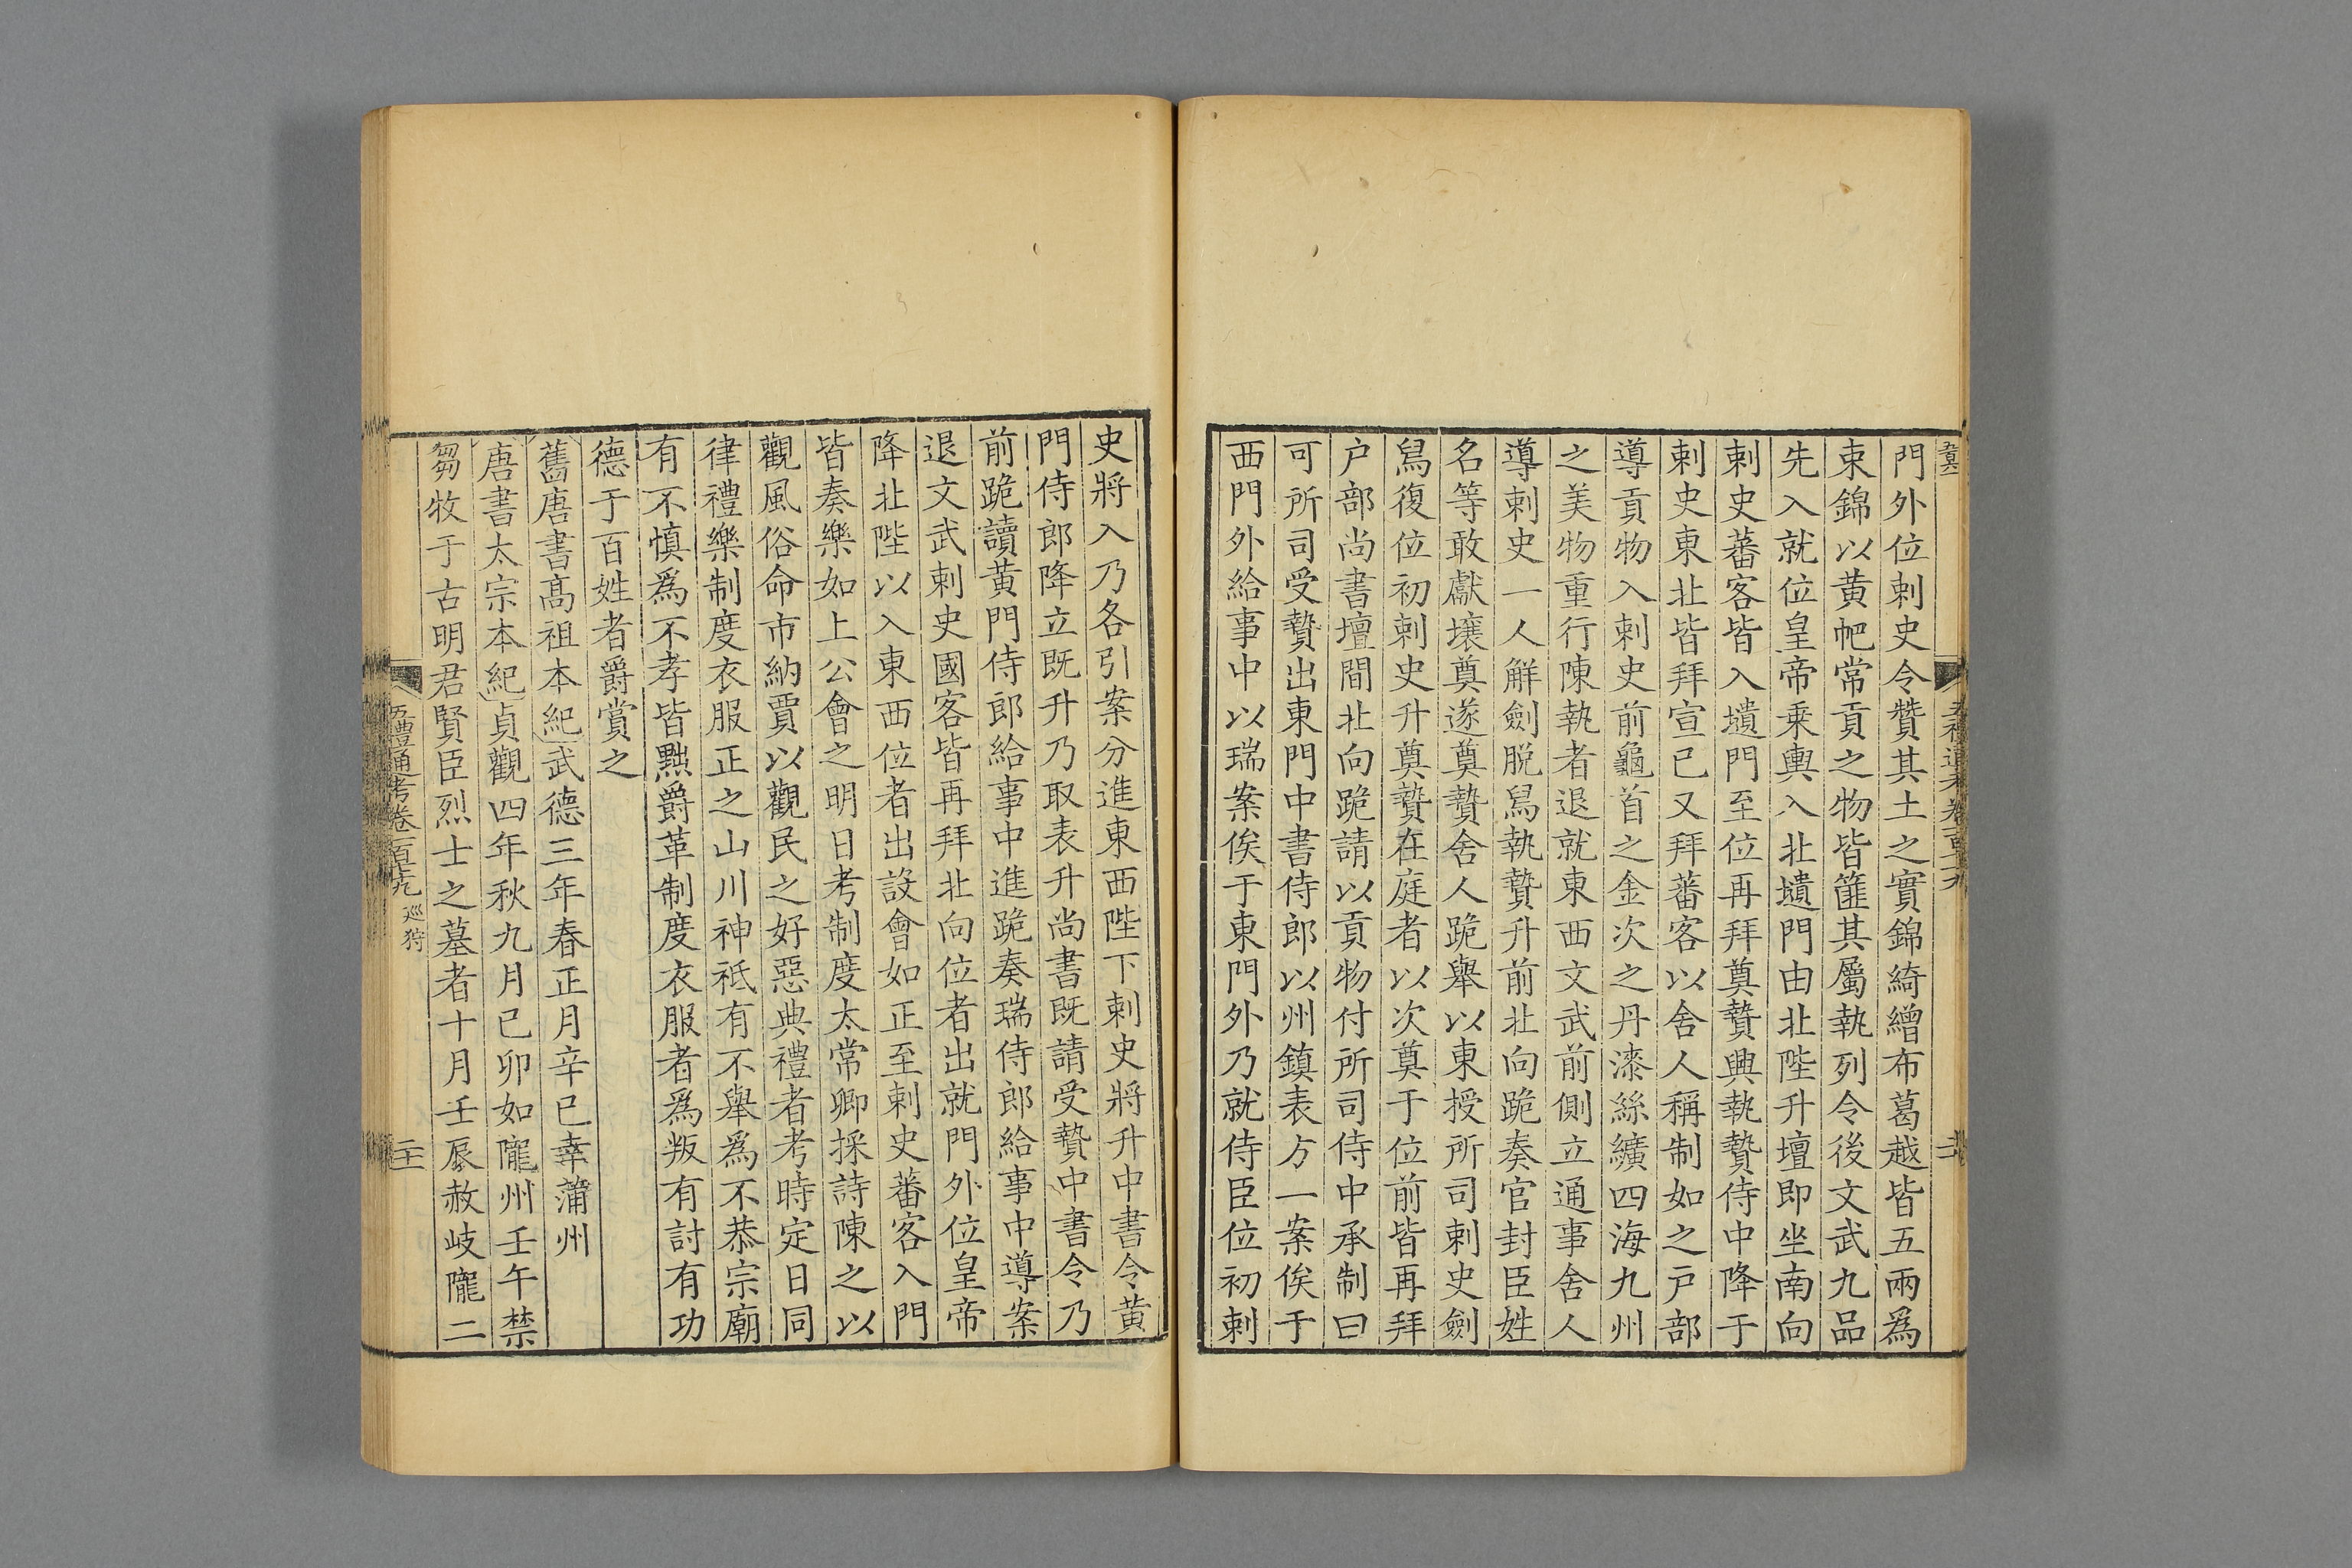 門外位刺史令贊其土之實錦綺繒布葛越皆五兩爲
束錦以黃帊常貢之物皆篚其屬執列令後文武九品
先入就位皇帝乘輿入北壝門由北陛升壇即坐南向
刺史蕃客皆入壝門至位再拜奠贄興執贄侍中降于
刺史東北皆拜宣已又拜蕃客以舍人稱制如之戸部
導貢物入刺史前龜首之金次之丹漆絲纊四海九州
之美物重行陳執者退就東西文武前側立通事舍人
導刺史一人解劍脫舄執贄升前北向跪奏官封臣姓
名等敢獻壤奠遂奠贄舍人跪舉以東授所司刺史劍
舄復位初刺史升奠贄在庭者以次奠于位前皆再拜
户部尚書壇間北向跪請以貢物付所司侍中承制曰
可所司受贄出東門中書侍郎以州鎮表方一案俟于
西門外給事中以瑞案俟于東門外乃就侍臣位初刺
史將入乃各引案分進東西陛下刺史將升中書令黃
門侍郎降立既升乃取表升尚書既請受贄中書令乃
前跪讀黃門侍郎給事中進跪奏瑞侍郎給事中導案
退文武刺史國客皆再拜北向位者出就門外位皇帝
降北陛以入東西位者出設會如正至刺史蕃客入門
皆奏樂如上公會之明日考制度太常卿採詩陳之以
觀風俗命市納賈以觀民之好惡典禮者考時定日同
律禮樂制度衣服正之山川神祗有不舉爲不恭宗廟
有不慎爲不孝皆黜爵革制度衣服者爲叛有討有功
德于百姓者爵賞之
舊唐書髙祖本紀武德三年春正月辛巳幸蒲州
唐書太宗本紀貞觀四年秋九月己卯如隴州壬午禁
芻牧于古明君賢臣烈士之墓者十月壬辰赦岐隴二
五禮通考卷一百七十九 巡狩
二十一